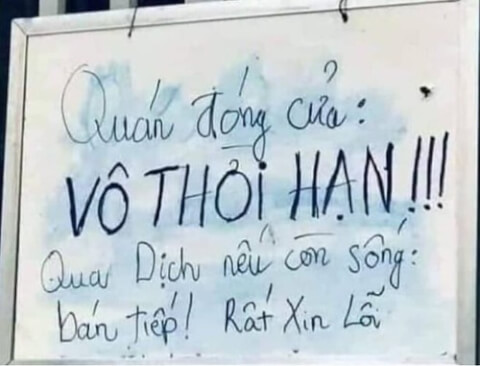 Quán đóng cửa:
VÔ THỜI HẠN!!!
Qua Dịch nếu còn sống:
bán tiếp! Rất Xin Lỗi